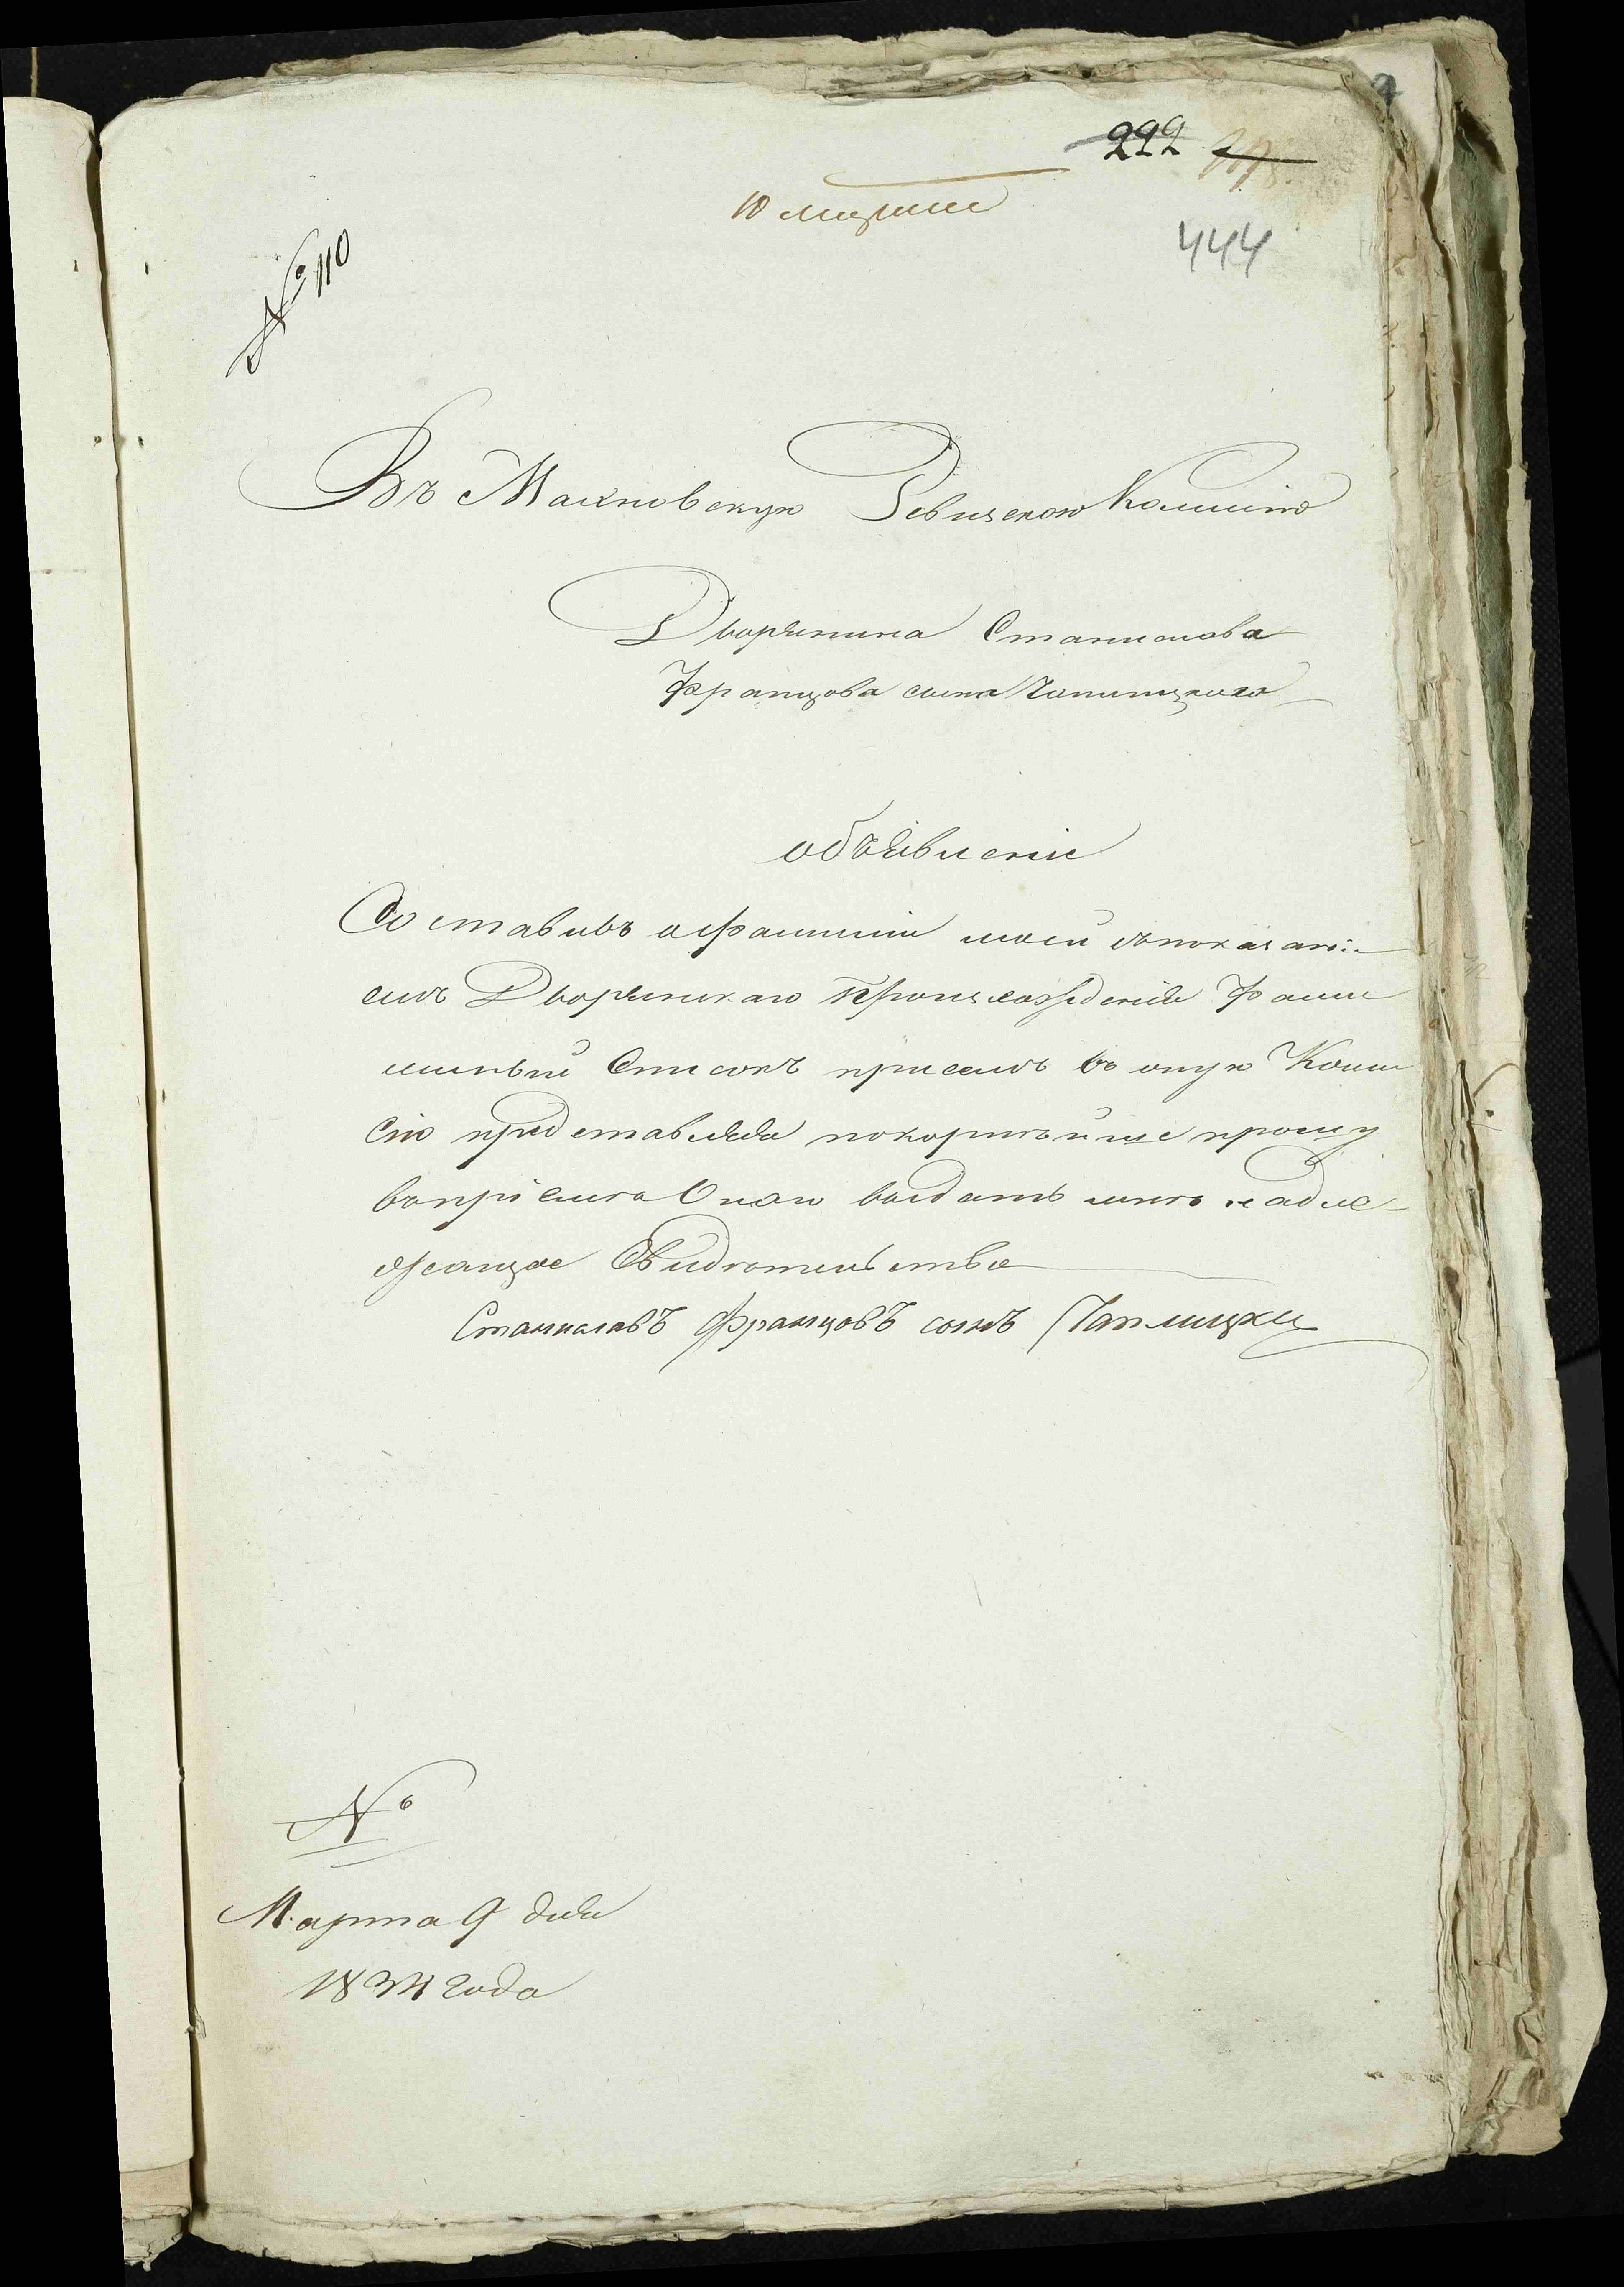 222
10 марта
444
№ 110
Въ Махновскую Ревизскою Комисію
Дворянина Станислова
Францова сына Чаплицкого
объявленіе
Составивъ офамиліи моей споказані
емъ Дворянскаго Происхожденія Фами
лильный Списокъ присемъ въ оную Коми
сію представляя покорнѣйше прошу
впріемѣ Онаго выдать мнѣ надле-
жащое Свидѣтельство
Станиславъ Францовъ сынъ Чаплицки
№
Марта 9 дня
1834 года